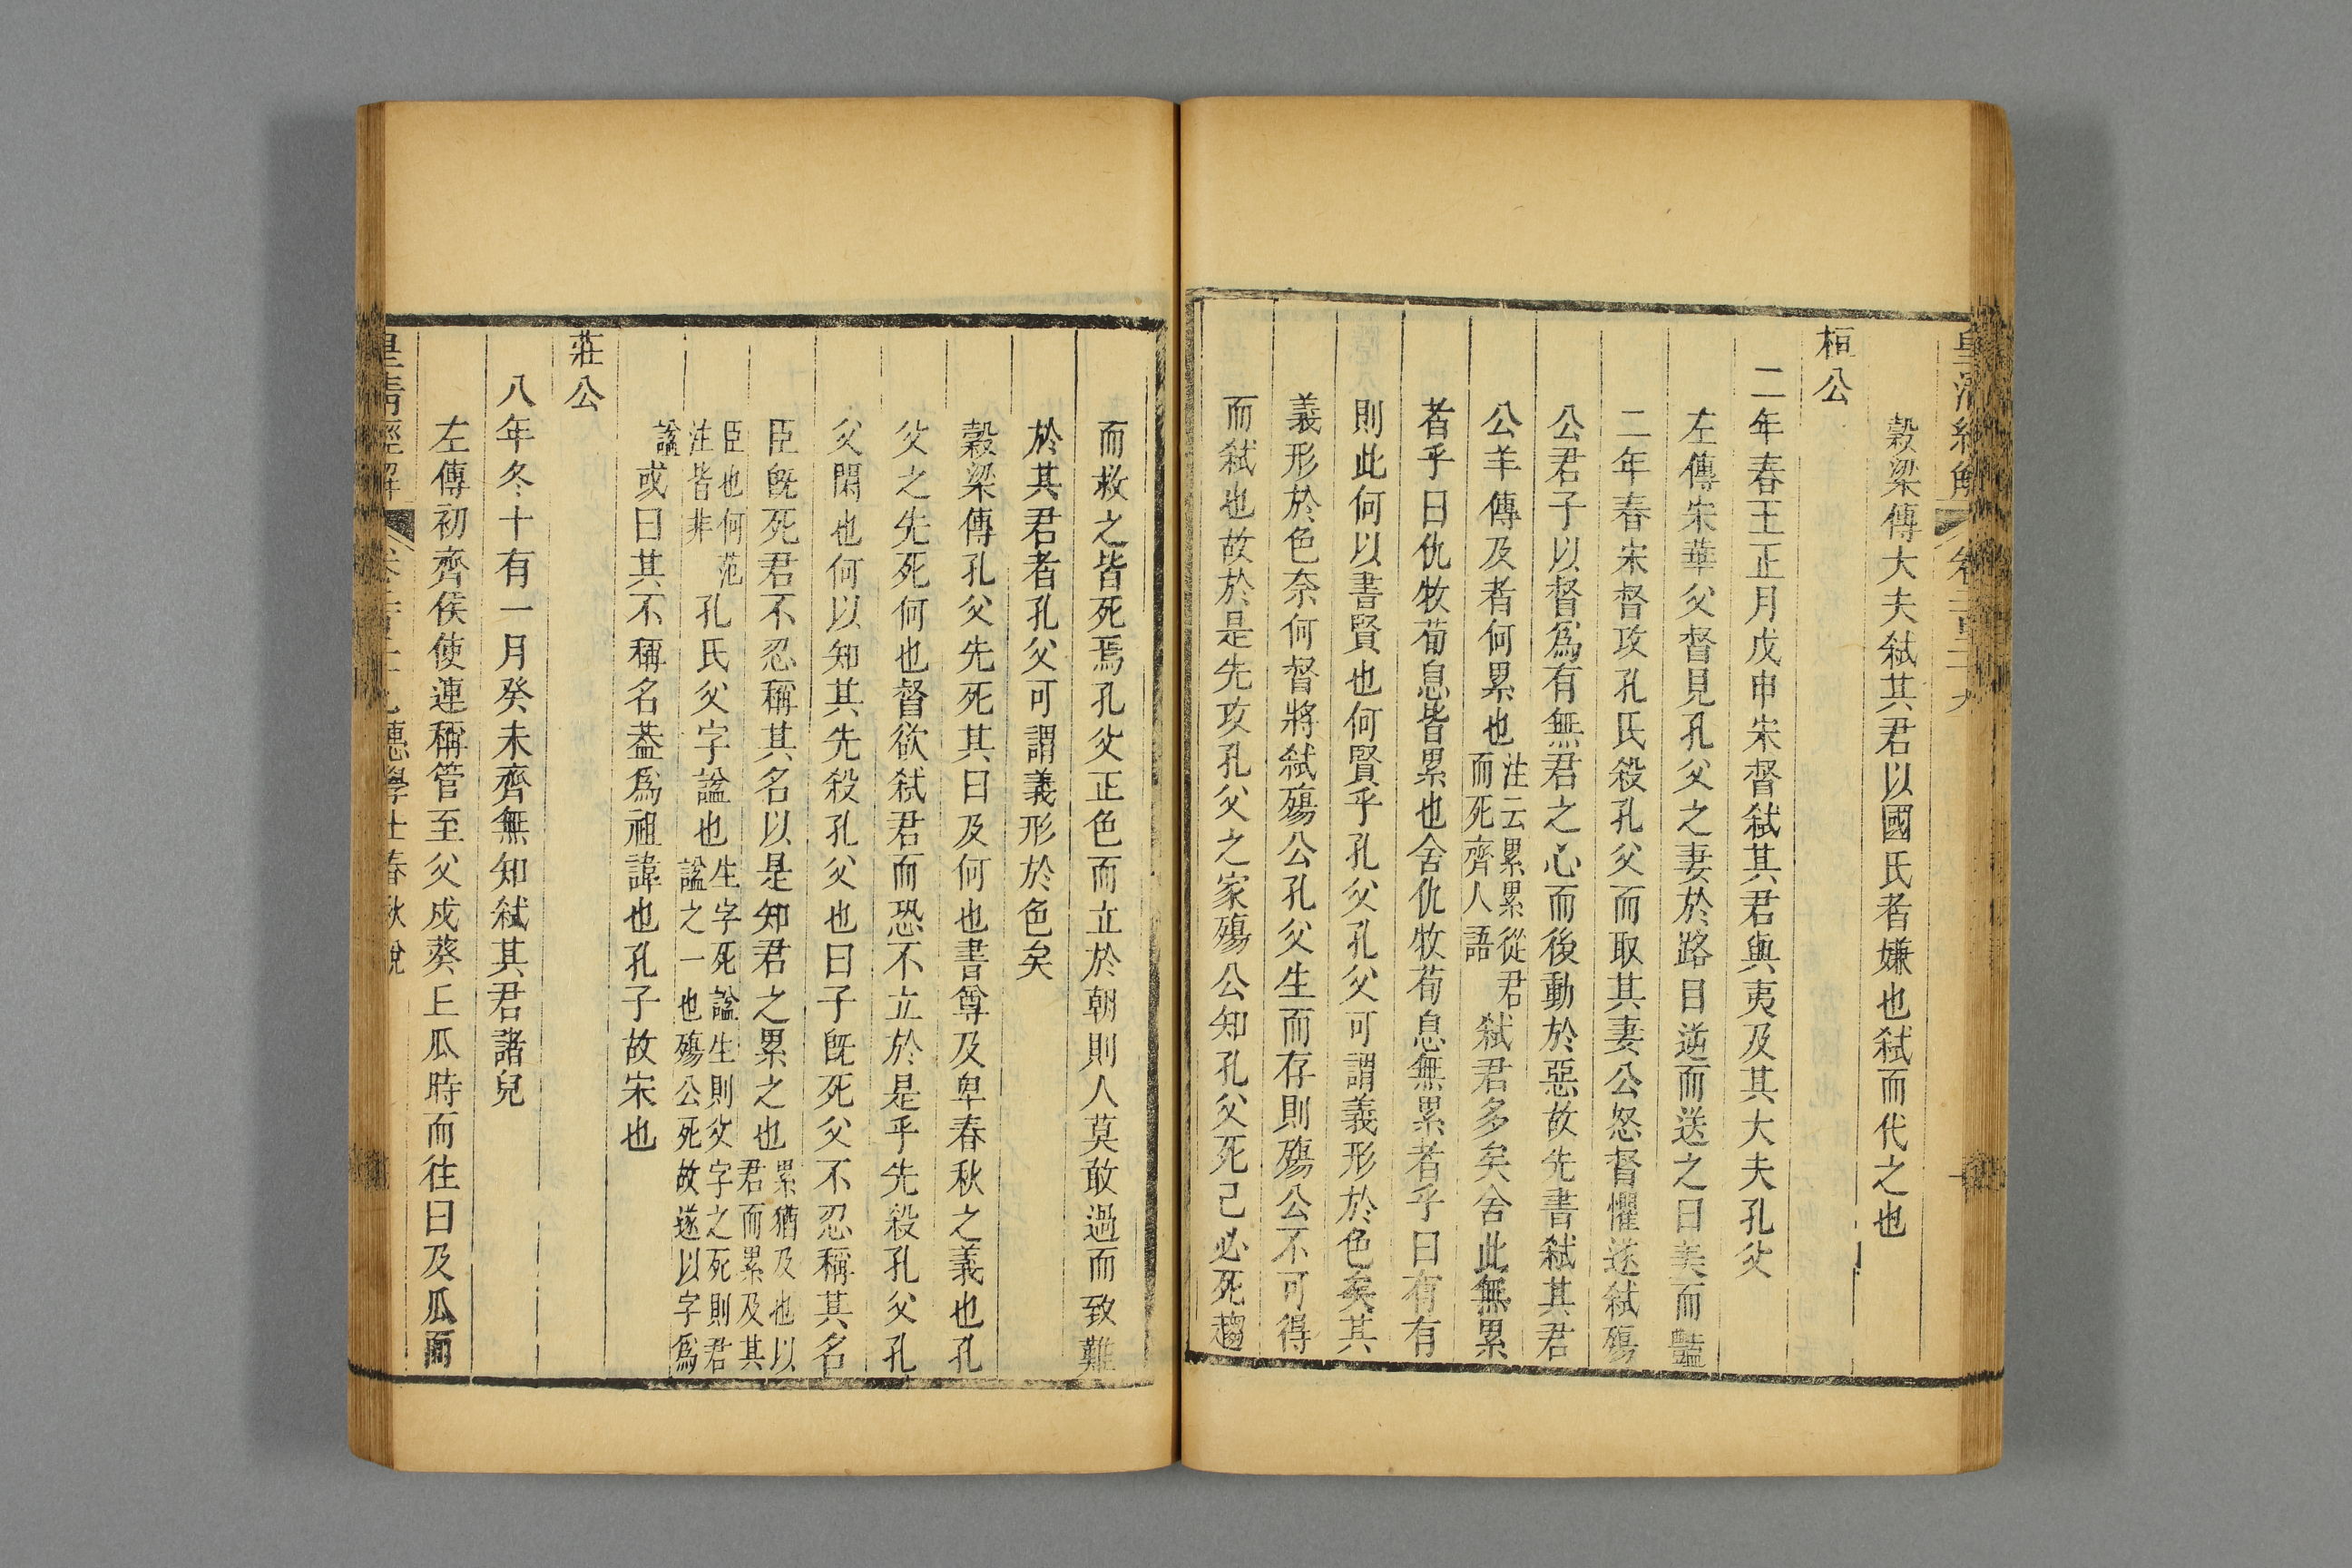 皇清經解
穀梁傳大夫弑其君以國氏者嫌也弑而代之也
桓公
二年春王正月戊申宋督弑其君與夷及其大夫孔父
左傳宋華父督見孔父之妻於路目逆而送之曰美而豔
二年春宋督攻孔氏殺孔父而取其妻公怒督懼遂弑殤
公君子以督爲有無君之心而後動於惡故先書弑其君
公羊傳及者何累也注云累累從君而死齊人語弑君多矣舍此無累
者乎曰仇牧荀息皆累也舍仇牧荀息無累者乎曰有有
則此何以書賢也何賢乎孔父孔父可謂義形於色矣其
義形於色奈何督將弑殤公孔父生而存則殤公不可得
而弑也故於是先攻孔父之家殤公知孔父死己必死趨
而救之皆死焉孔父正色而立於朝則人莫敢過而致難
於其君者孔父可謂義形於色矣
穀梁傳孔父先死其曰及何也書尊及卑春秋之義也孔
父之先死何也督欲弑君而恐不立於是乎先殺孔父孔
父閑也何以知其先殺孔父也曰子既死父不忍稱其名
臣既死君不忍稱其名以是知君之累之也累猶及也以君而累及其
臣也何范注皆非孔氏父字諡也生字死諡生則父字之死則君諡之一也殤公死故遂以字爲
諡或曰其不稱名蓋爲祖諱也孔子故宋也
莊公
八年冬十有一月癸未齊無知弑其君諸兒
左傳初齊侯使連稱管至父戍葵丘瓜時而往曰及瓜而
皇清經解 惠學士春秋說